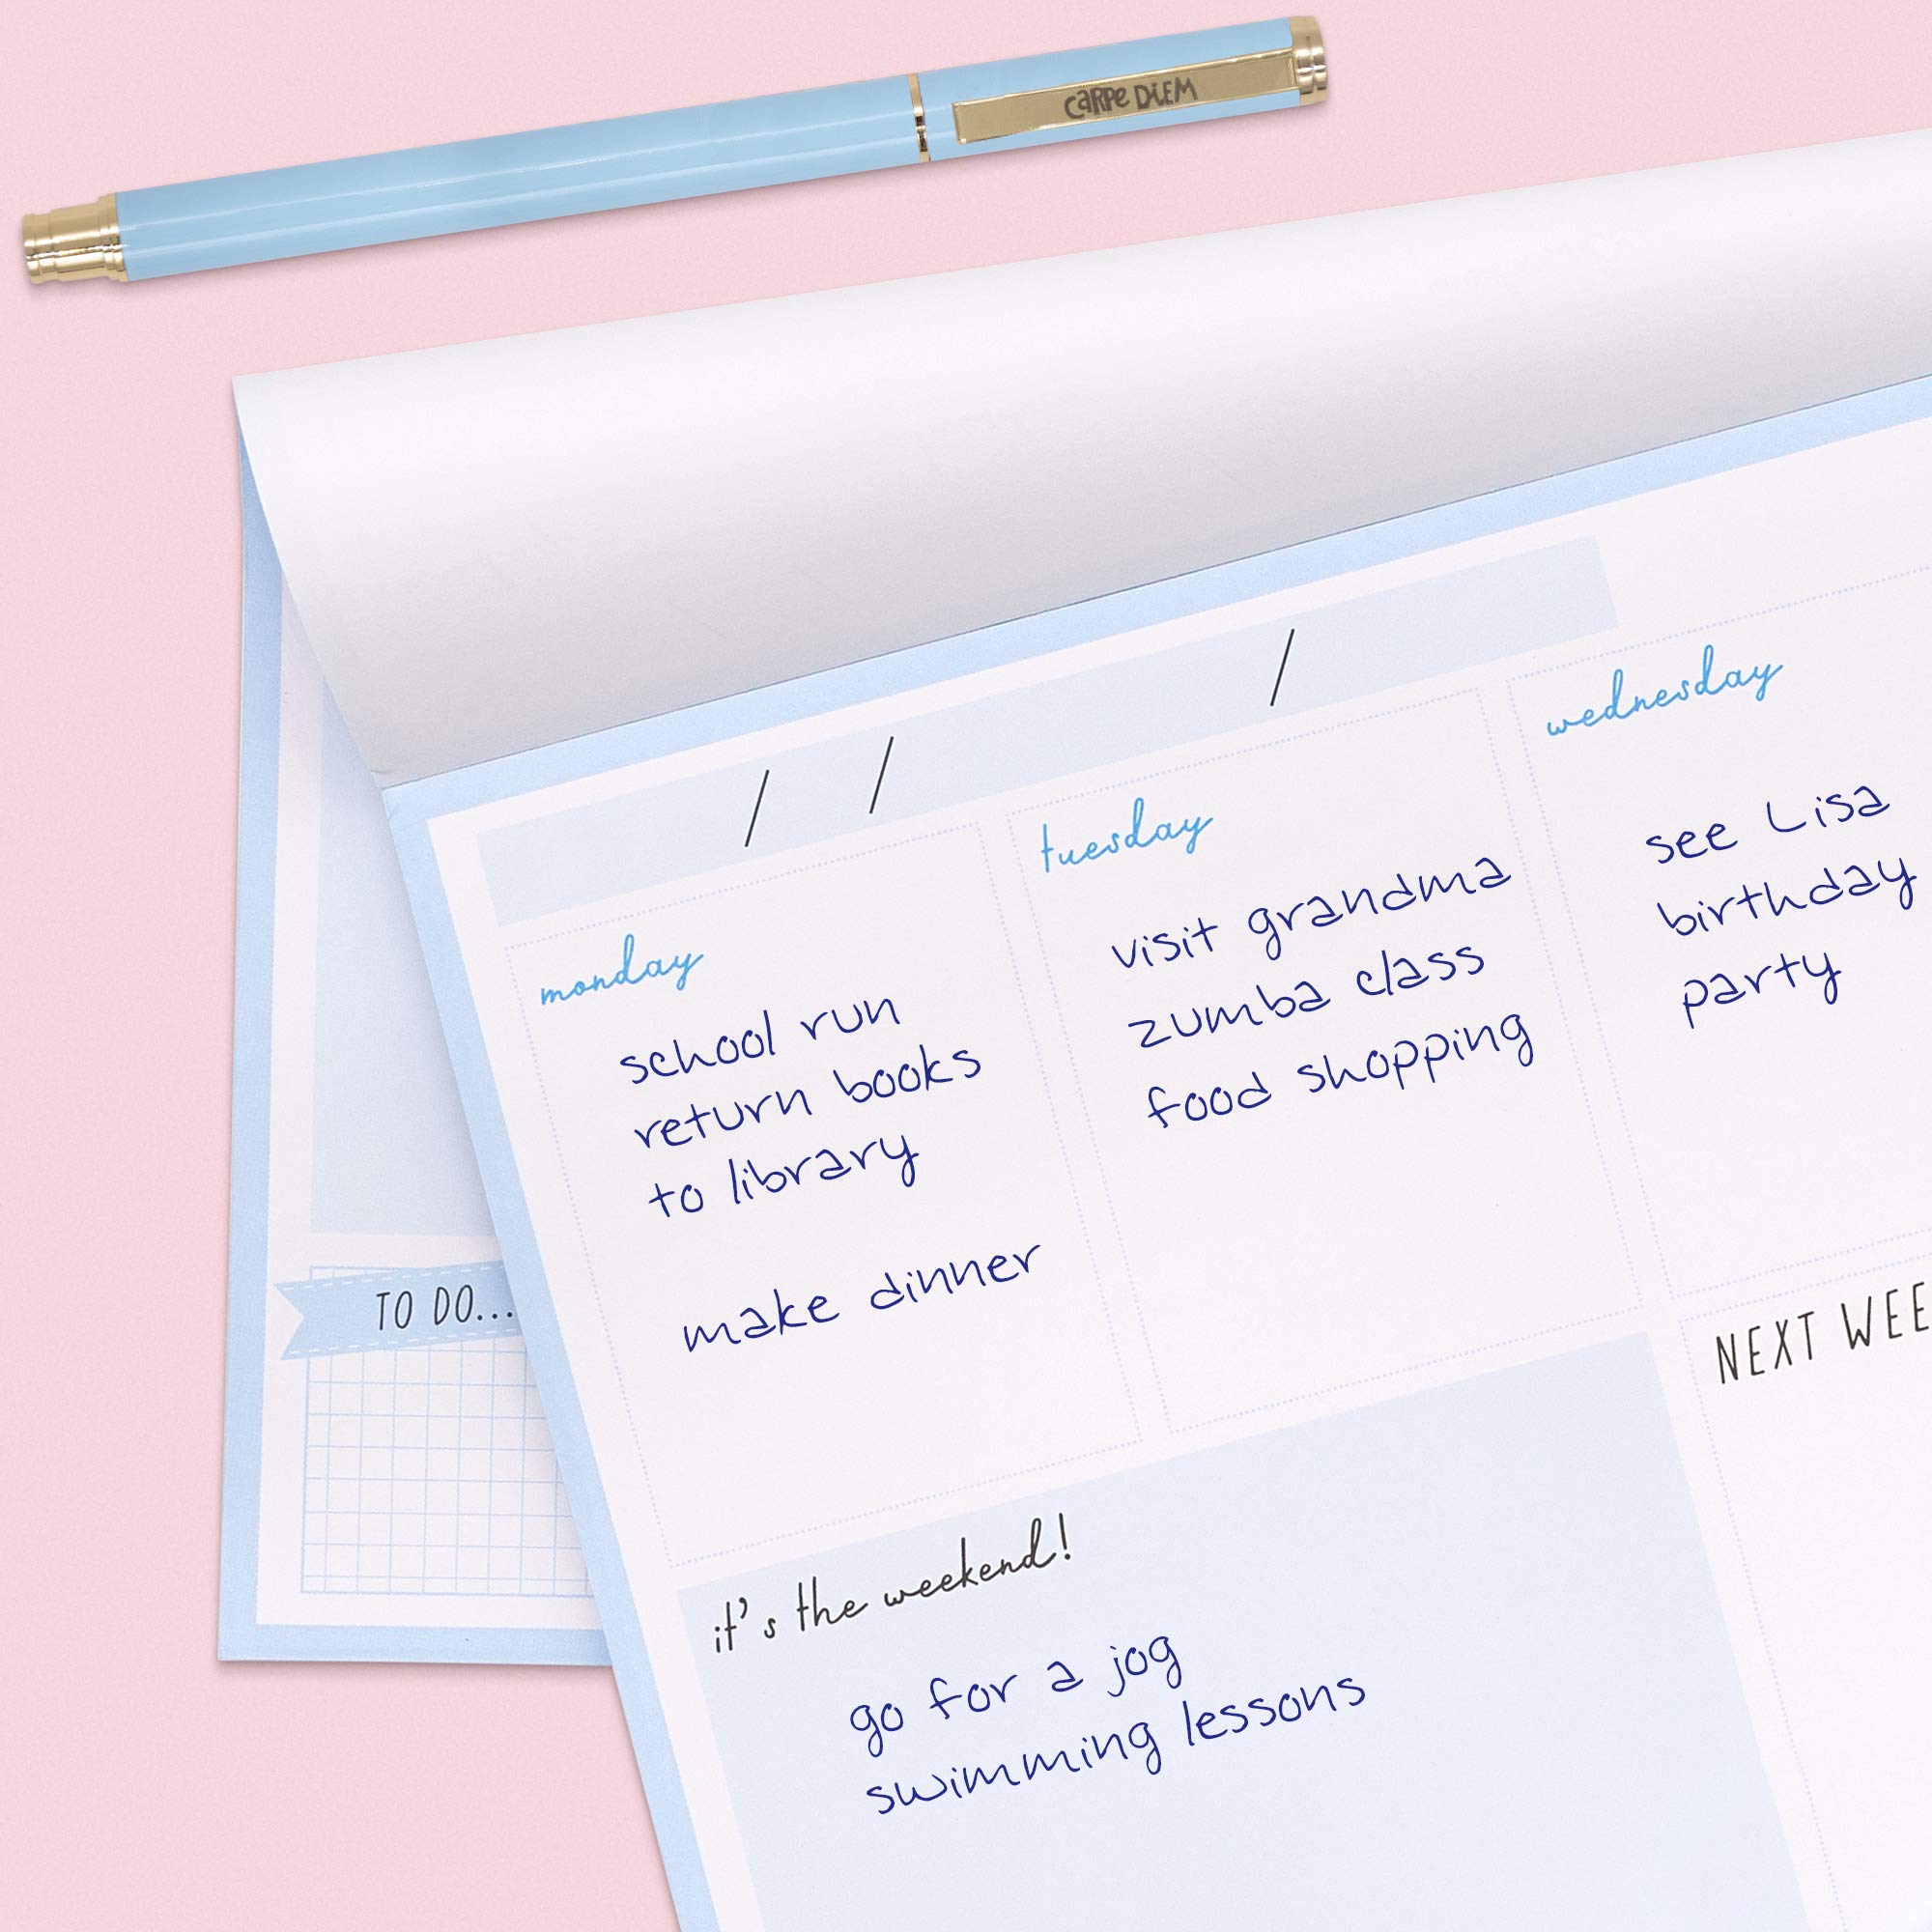 CARPE DIEM
/ / /
monday
school run
return books
to library
make dinner
tuesday
visit grandma
zumba class
food shopping
wednesday
see Lisa
birthday
party
TO DO...
it's the weekend!
go for a jog
swimming lessons
NEXT WEE